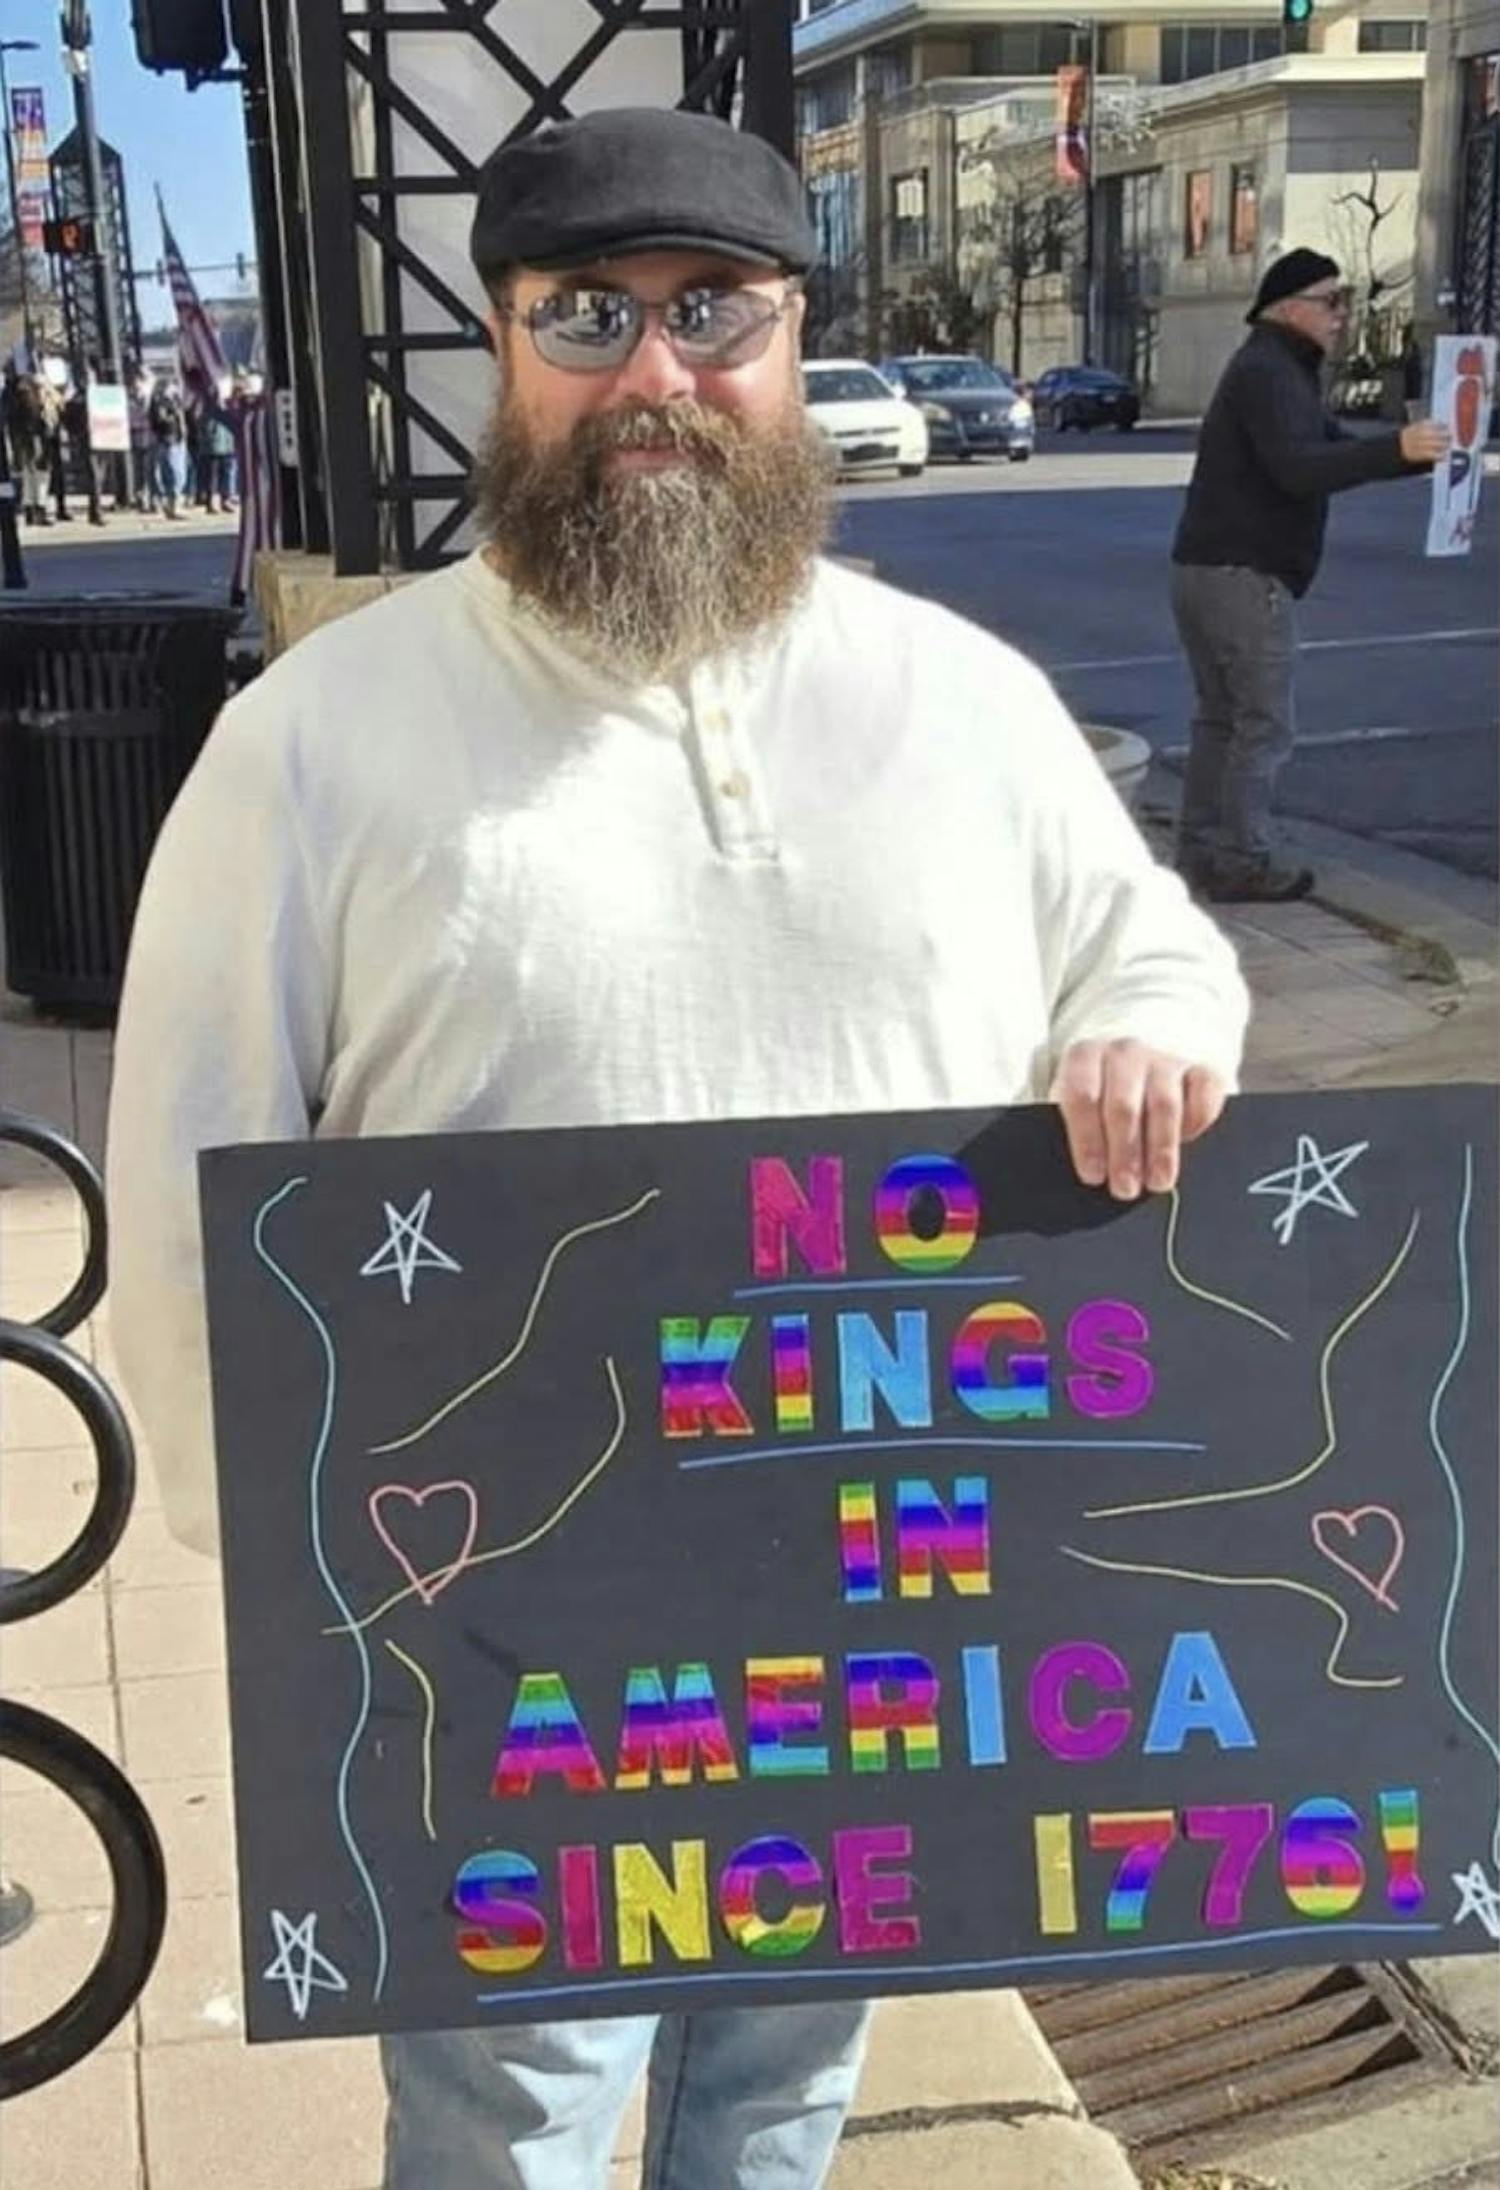 NO
KINGS
IN
AMERICA
SINCE 1776!